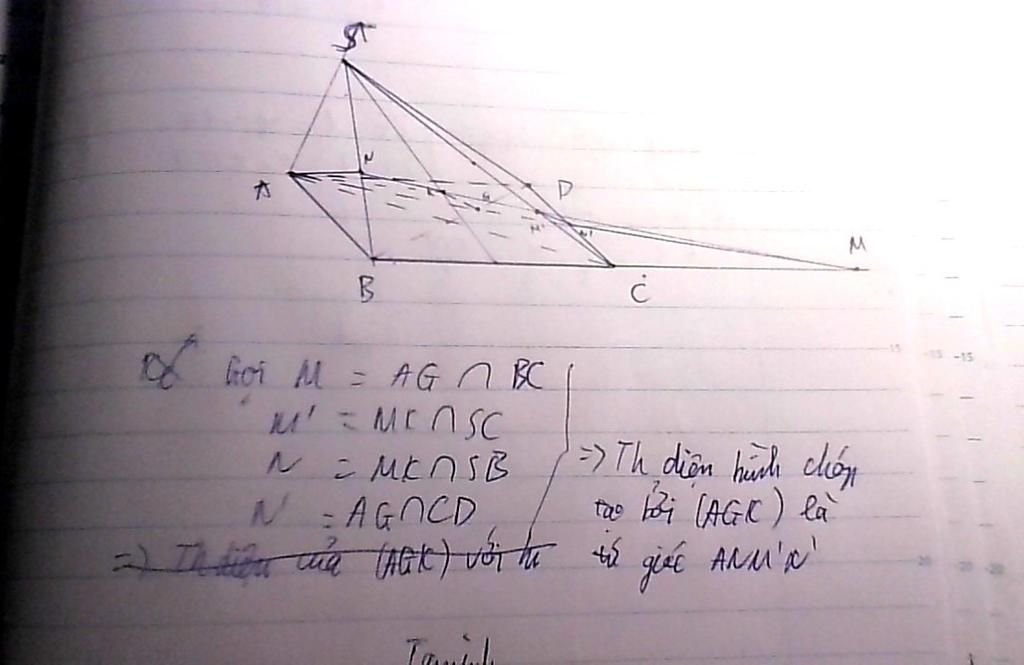 S
A
N
K
G
D
M'
N'
M
B
C
Gọi M = AG ∩ BC
M' = MK ∩ SC
N = MK ∩ SB
N' = AG ∩ CD
=> Th diện của (AGK) với h
=> Th diện hình chóp
tạo bởi (AGK) là
tứ giác ANM'N'